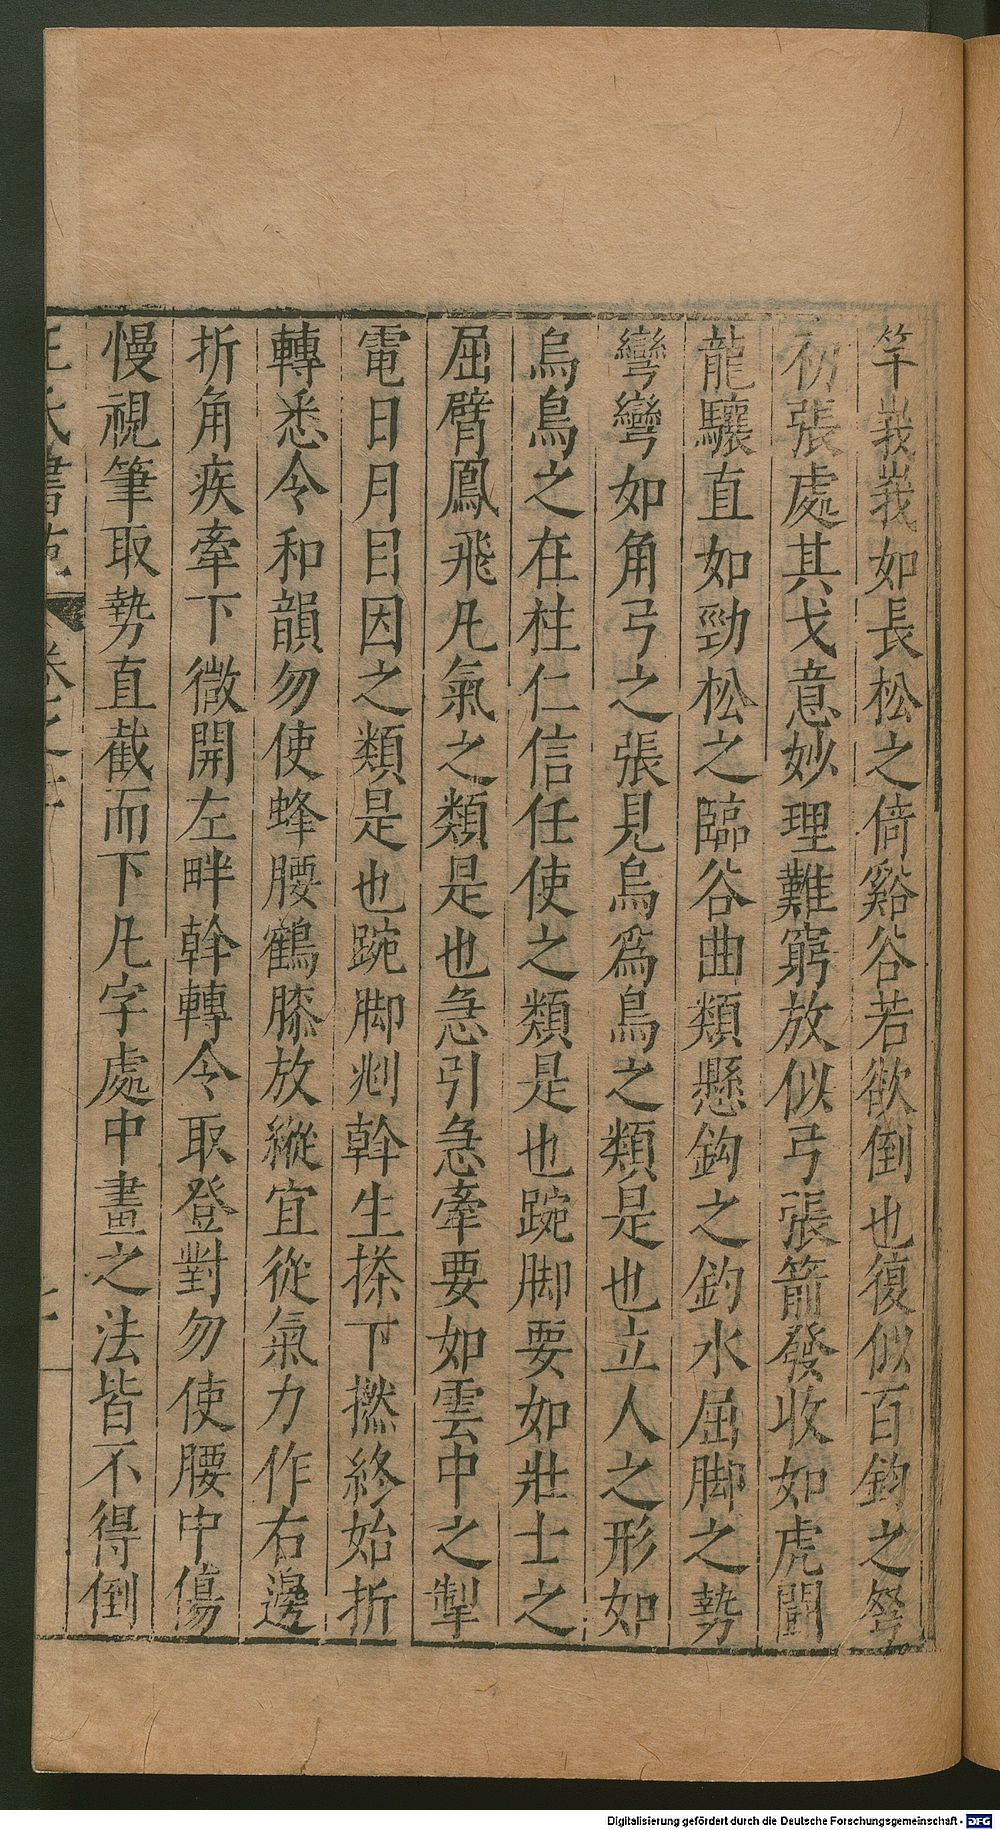 竿峩峩如長松之倚谿谷若欲倒也復似百鈞之弩
初張處其戈意妙理難窮放似弓張箭發收如虎鬪
龍驤直如勁松之臨谷曲類懸鈎之釣水屈脚之勢
彎彎如角弓之張見烏爲鳥之類是也立人之形如
烏鳥之在柱仁信任使之類是也踠脚要如壯士之
屈臂鳳飛凡氣之類是也急引急牽要如雲中之掣
電日月目因之類是也踠脚㓨斡生搽下撚終始折
轉悉令和韻勿使蜂腰鶴膝放縱宜從氣力作右邊
折角疾牽下微開左畔斡轉令取登對勿使腰中傷
慢視筆取勢直截而下凡字處中畫之法皆不得倒
王氏書苑 卷之
Digitalisierung gefördert durch die Deutsche Forschungsgemeinschaft - DFG